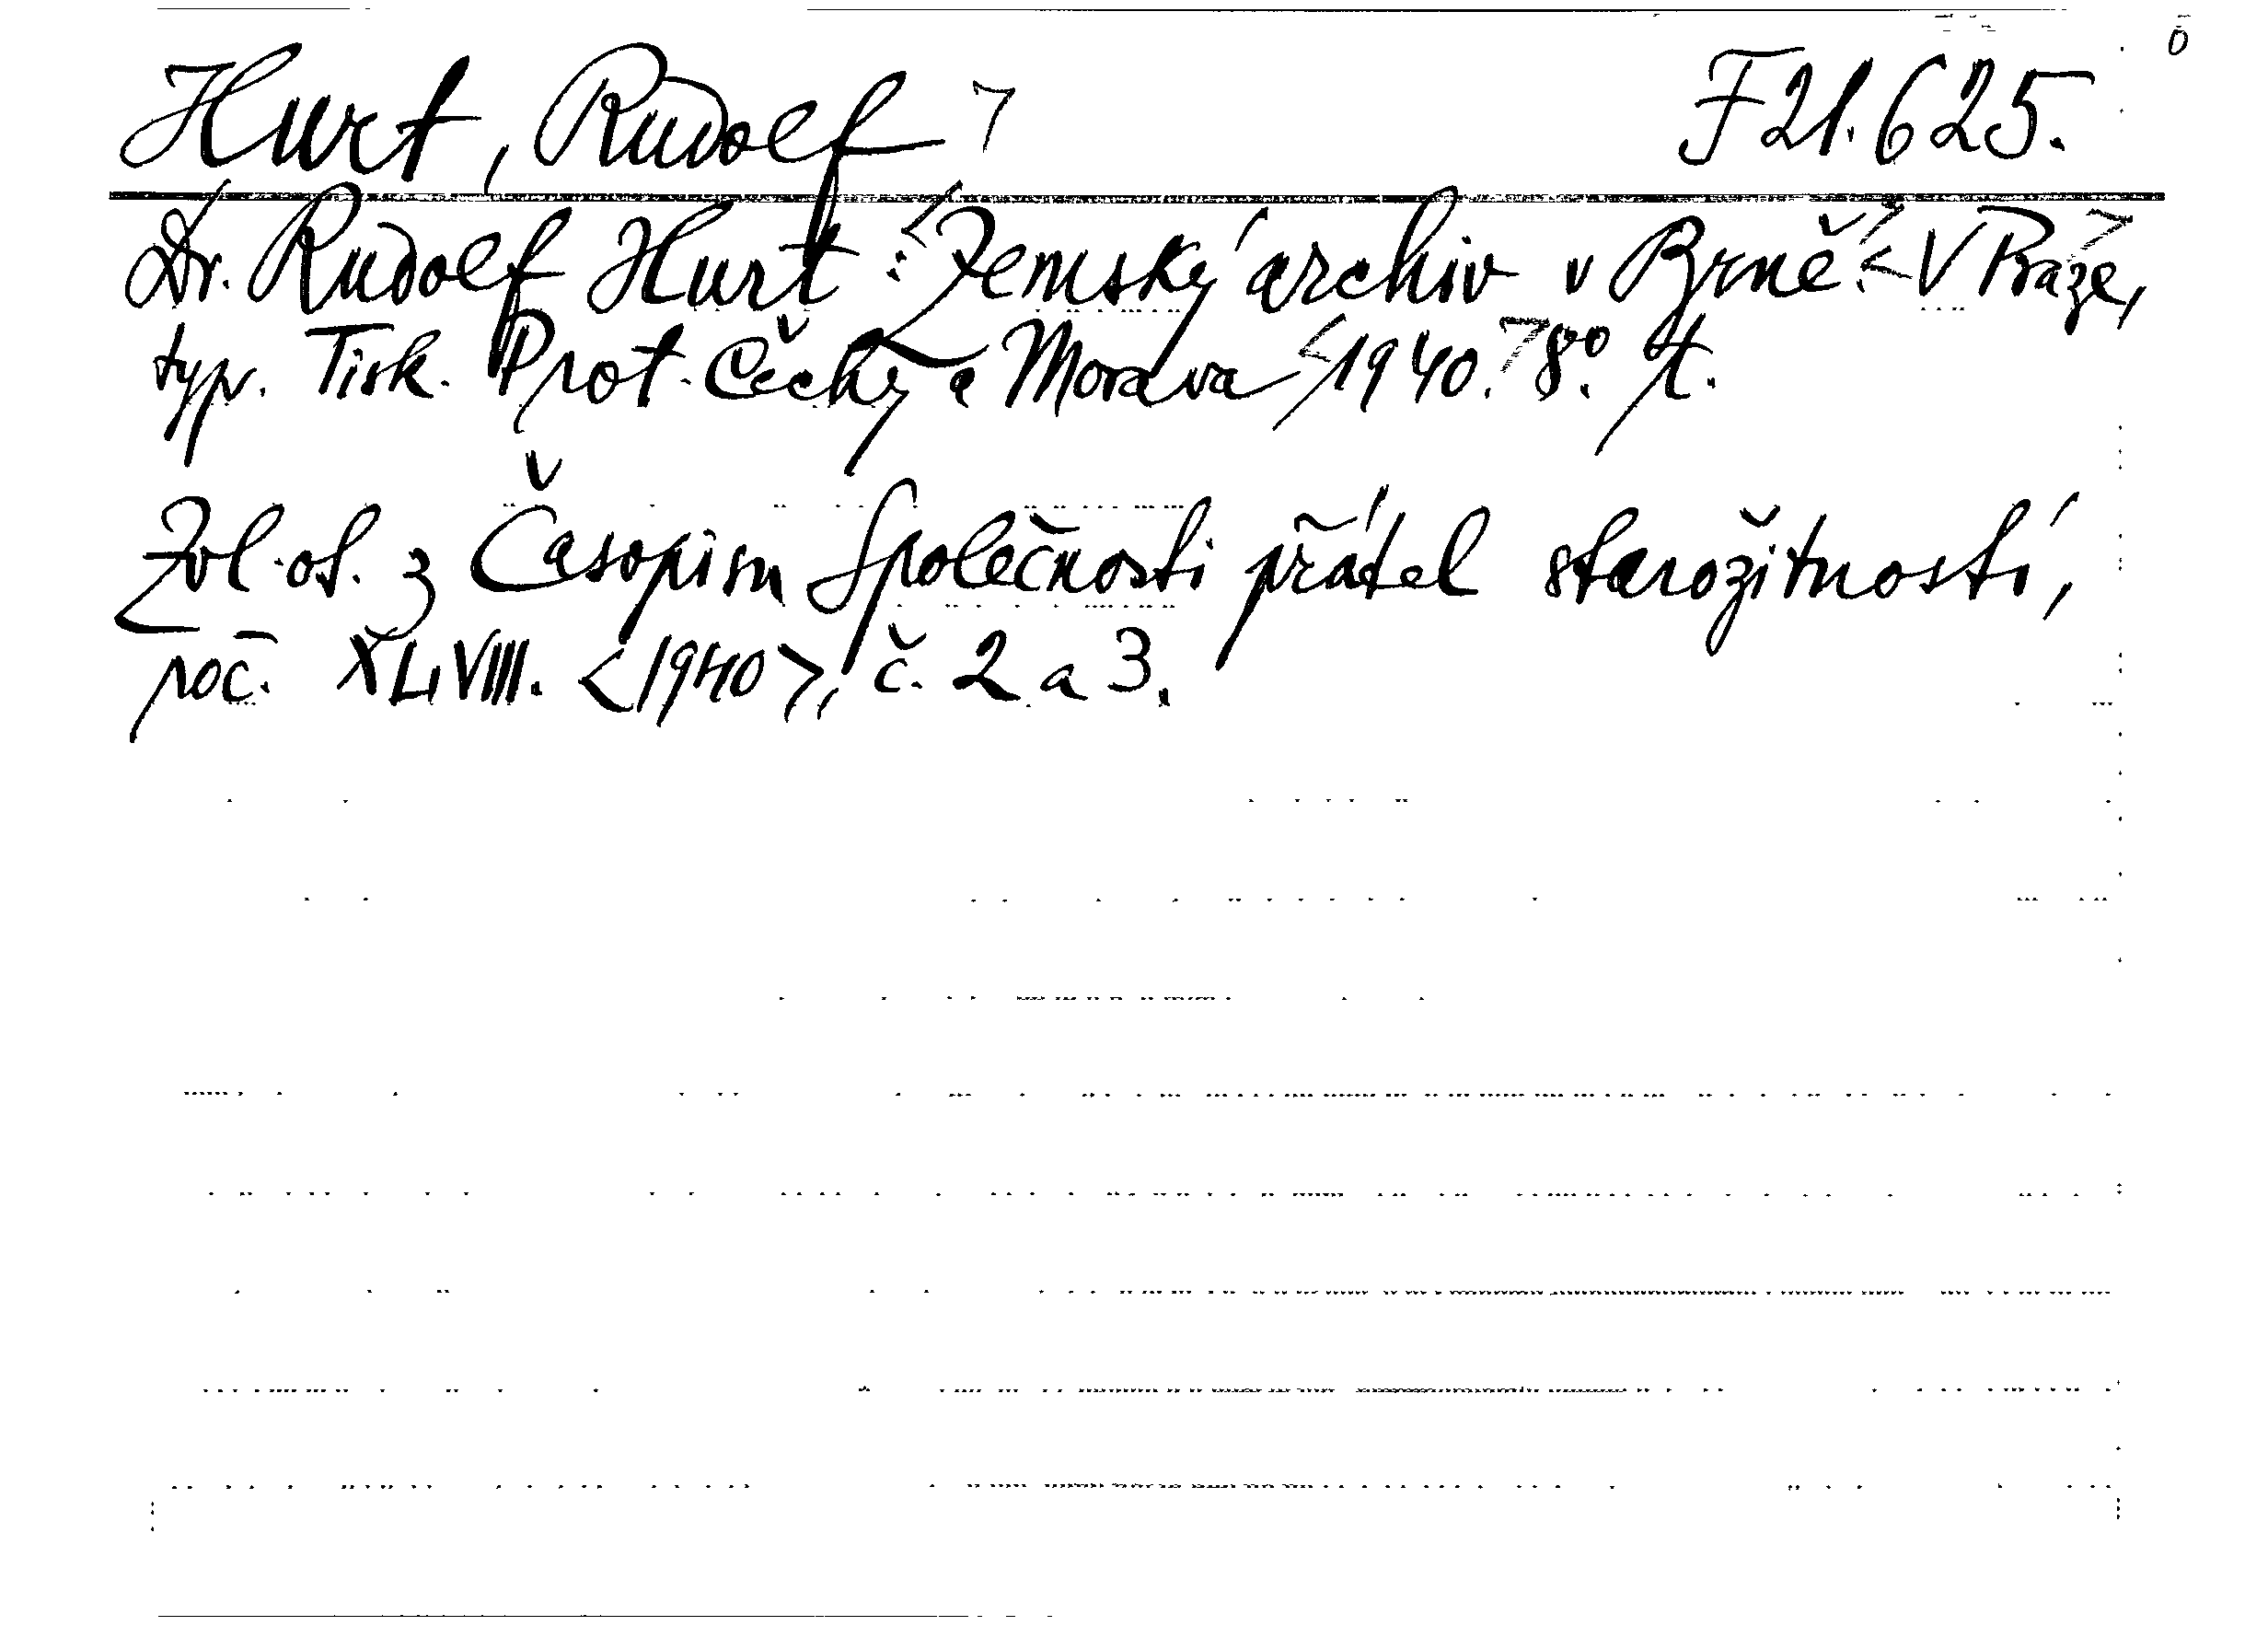 Hurt, Rudolf F 21.625.
Dr. Rudolf Hurt: Zemský archiv v Brně. <V Praze,
typ. Tisk. Prot. Čechy a Morava <1940.> 8°.
Zvl. ot. z Časopisu Společnosti přátel starožitností,
roč. XLVIII. <1940>, č. 2 a 3.